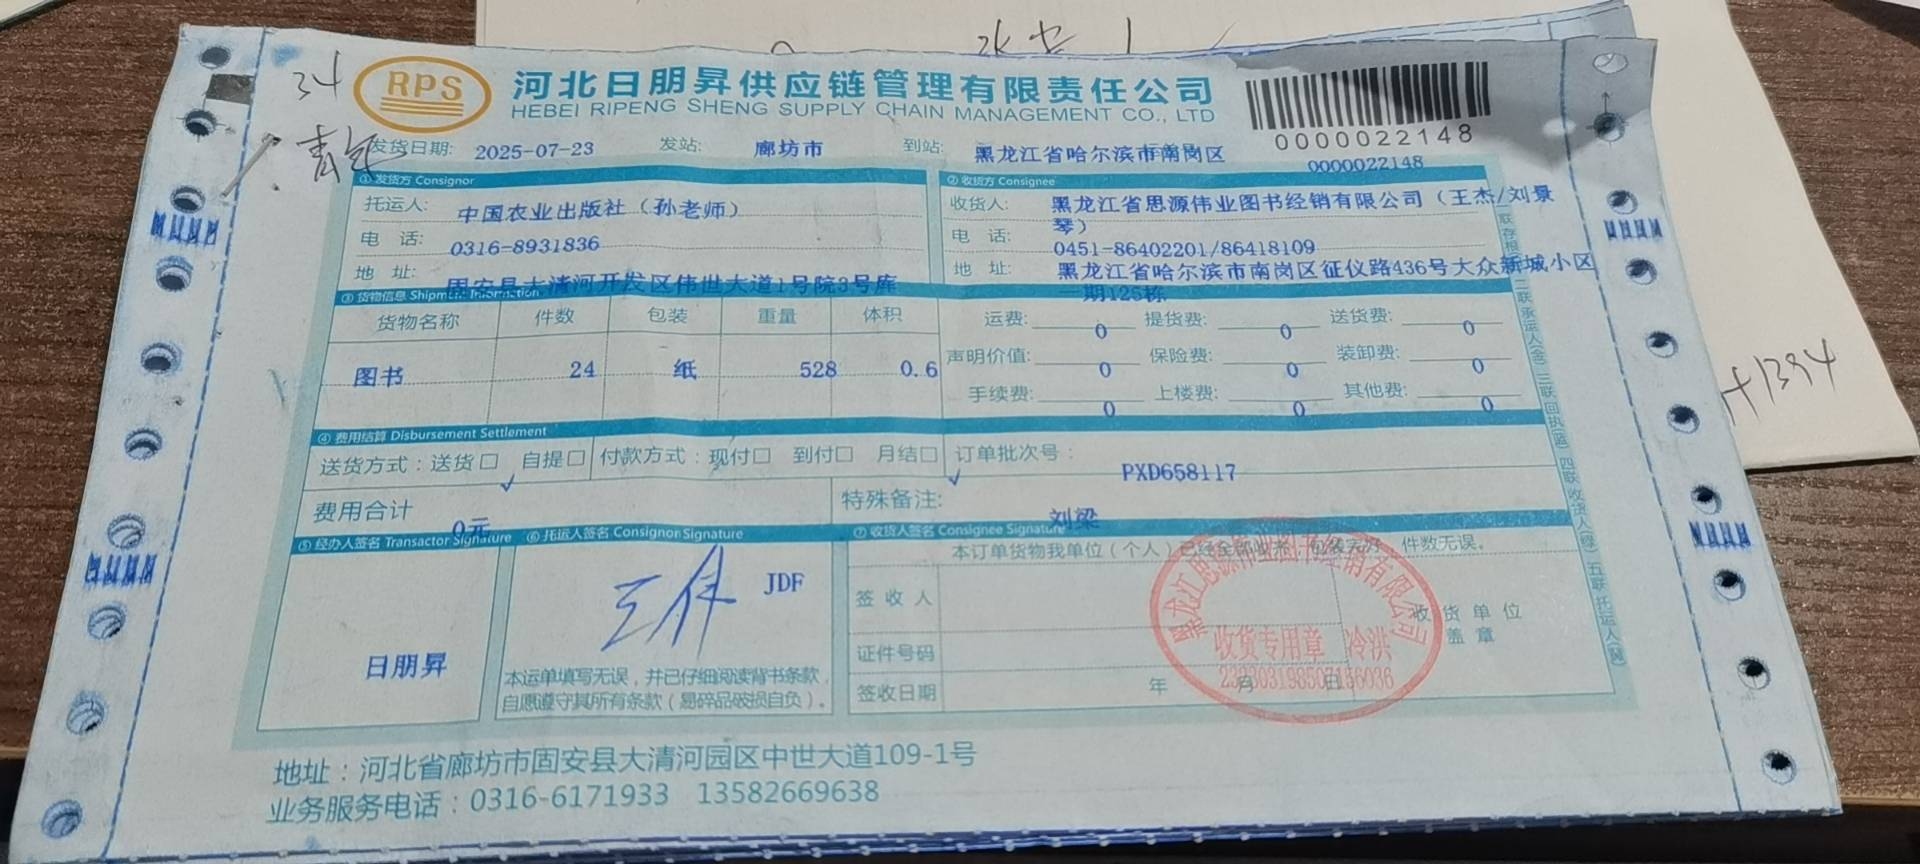 34
RPS
河北日朋昇供应链管理有限责任公司
HEBEI RIPENG SHENG SUPPLY CHAIN MANAGEMENT CO., LTD
0000022148
0000022148
发货日期: 2025-07-23 发站: 廊坊市 到站: 黑龙江省哈尔滨市南岗区
① 发货方 Consignor ② 收货方 Consignee
托运人: 中国农业出版社（孙老师） 收货人: 黑龙江省思源伟业图书经销有限公司（王杰/刘景琴）
电 话: 0316-8931836 电 话: 0451-86402201/86418109
地 址: 固安县大清河开发区伟世大道1号院3号库 地 址: 黑龙江省哈尔滨市南岗区征仪路436号大众新城小区
一期125栋
③ 货物信息 Shipment Information
货物名称 件数 包装 重量 体积 运费: 0 提货费: 0 送货费: 0
图书 24 纸 528 0.6 声明价值: 0 保险费: 0 装卸费: 0
手续费: 0 上楼费: 0 其他费: 0
④ 费用结算 Disbursement Settlement
送货方式：送货□ 自提□ 付款方式：现付□ 到付□ 月结□ 订单批次号： PXD658117
✓ ✓
费用合计 0元 特殊备注: 刘梁
⑤ 经办人签名 Transactor Signature ⑥ 托运人签名 Consignor Signature ⑦ 收货人签名 Consignee Signature
本订单货物我单位（个人）已经全部收米，包装完好，件数无误。
JDF
签 收 人 收 货 单 位
盖 章
证件号码
日朋昇
签收日期 年 月 日
本运单填写无误，并已仔细阅读背书条款，
自愿遵守其所有条款（易碎品破损自负）。
黑龙江思源伟业图书经销有限公司
收货专用章 冷洪
地址：河北省廊坊市固安县大清河园区中世大道109-1号
业务服务电话：0316-6171933 13582669638
+1394